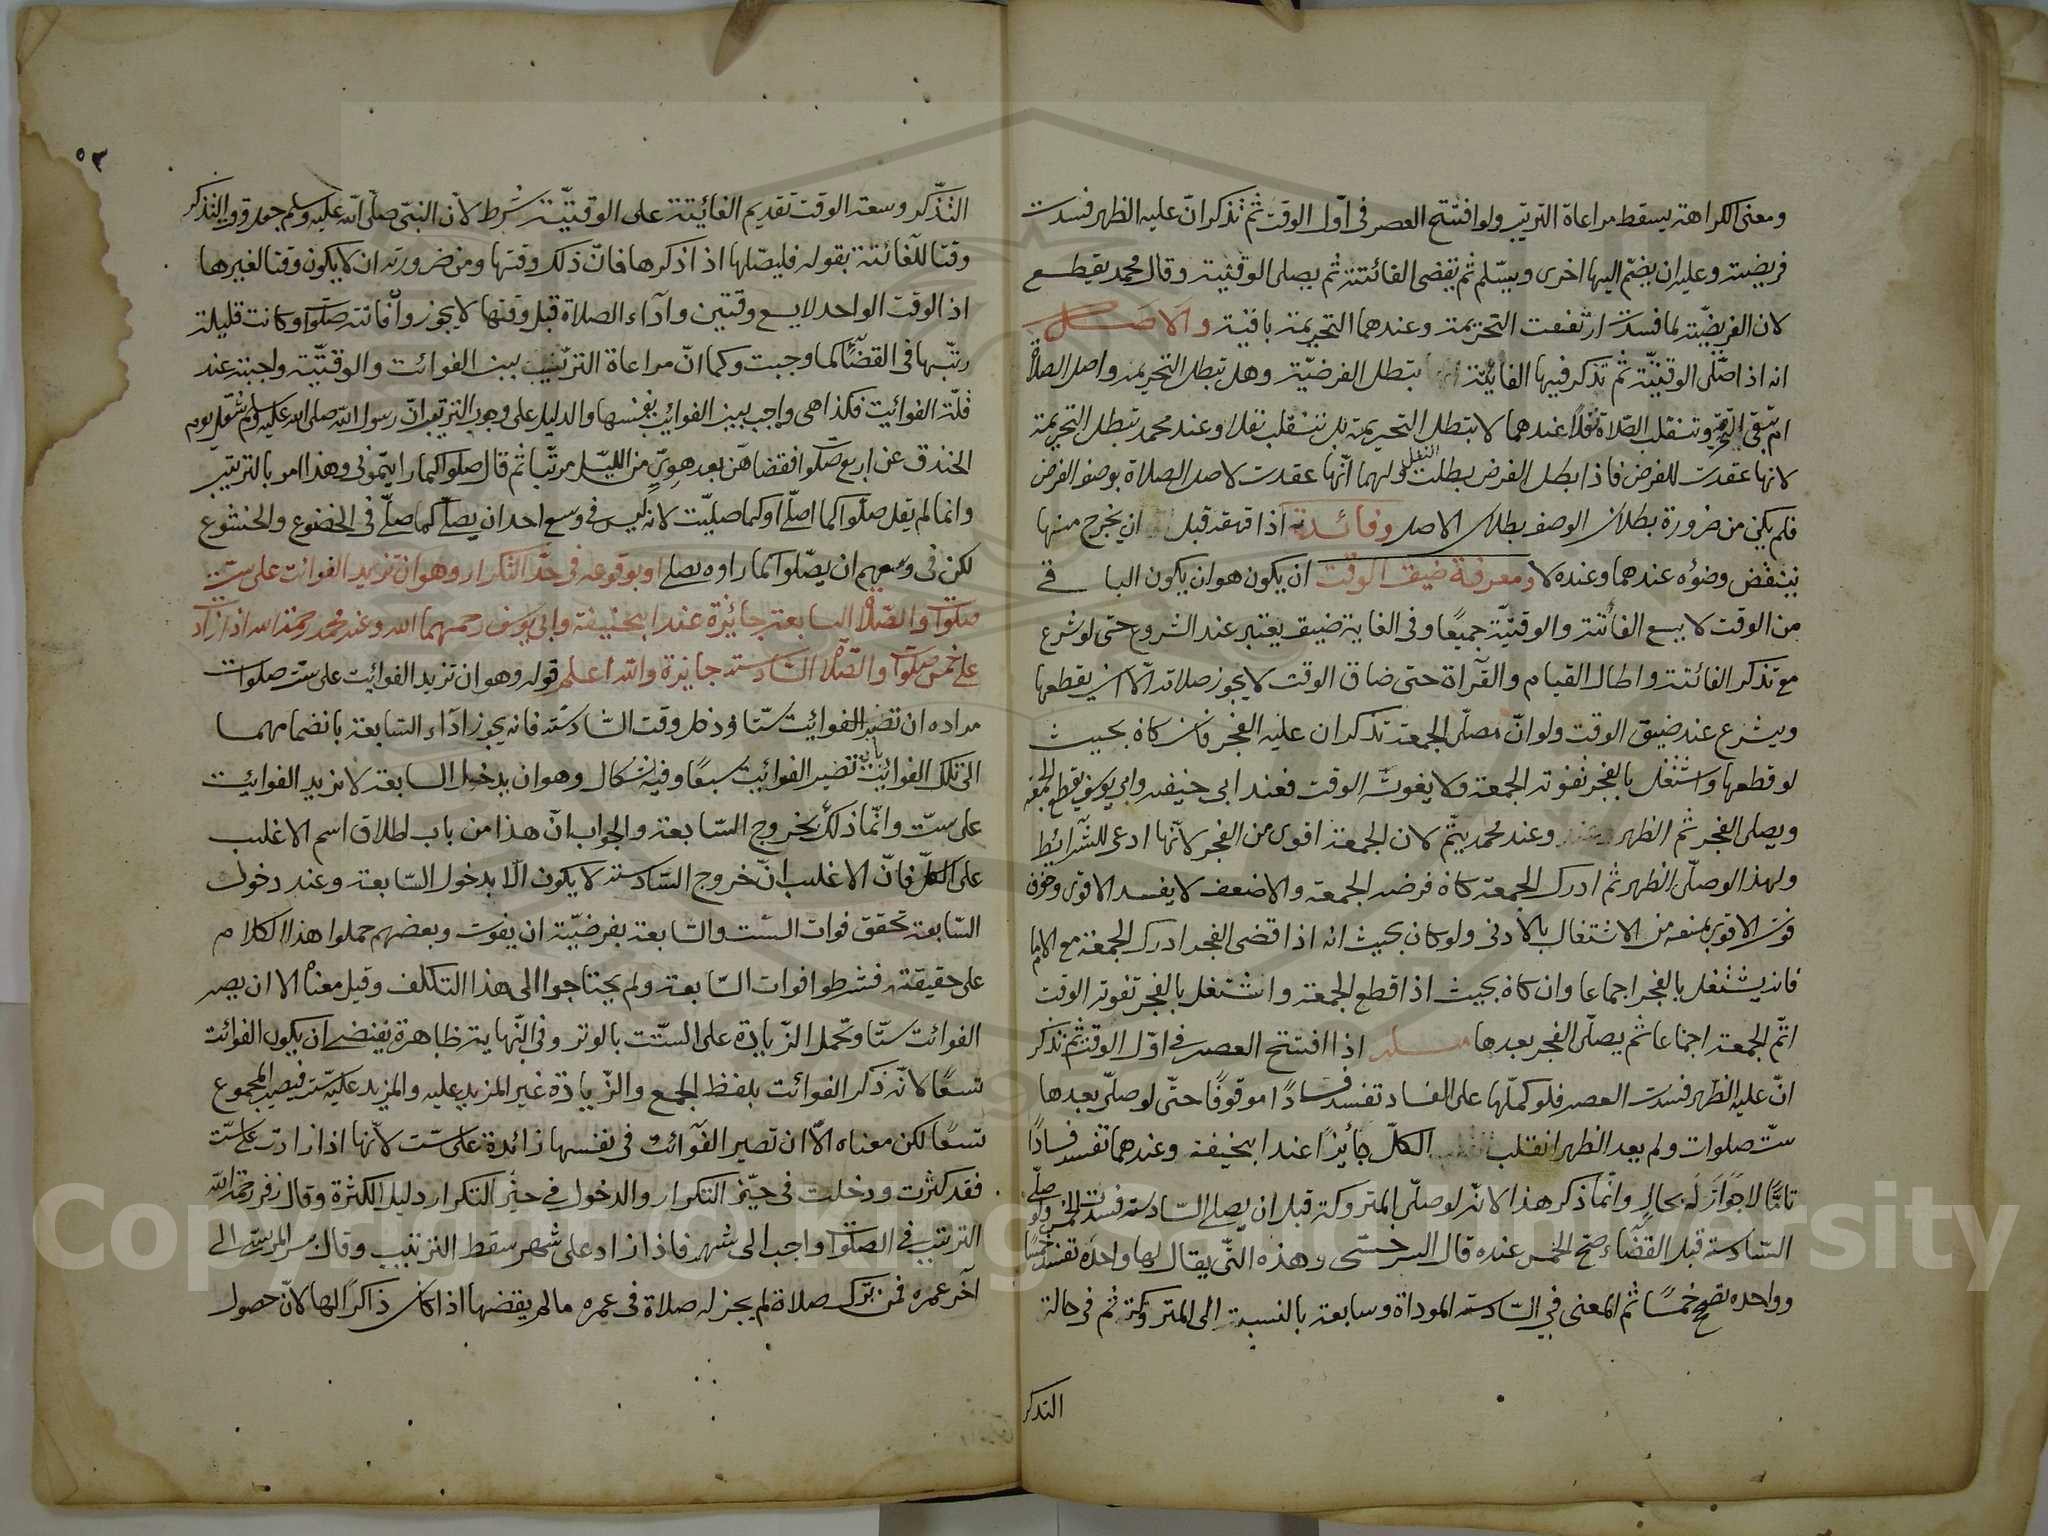 ومعنى الكراهة يسقط مراعاة الترتيب ولو افتتح العصر في اول الوقت ثم تذكر ان عليه الظهر فسدت
فريضته وعليه ان يضم اليها اخرى ويسلم ثم يقضى الفائتة ثم يصلى الوقتية وقال محمد يقطع
لان الفريضة لما فسدت ارتفعت التحريمة وعندهما التحريمة باقية والاصل
انه اذا صلى الوقتية ثم تذكر فيها الفائتة تبطل الفرضية وهل تبطل التحريمة واصل الصلاة
ام تبقى التحريمة وتنقلب الصلاة نفلا عندهما لا تبطل التحريمة بل تنقلب نفلا وعند محمد تبطل التحريمة
لانها عقدت للفرض فاذا بطل الفرض بطلت ولهما انها عقدت لاصل الصلاة بوصف الفرض
فلم يكن من ضرورة بطلان الوصف بطلان الاصل وفائدته اذا قهقه قبل ان يخرج منها
ينتقض وضؤه عندهما وعنده لا ومعرفة ضيق الوقت ان يكون هو ان يكون الباقى
من الوقت لا يسع الفائتة والوقتية جميعا وفى الغاية ضيق يعتبر عند الشروع حتى لو شرع
مع تذكر الفائتة واطال القيام والقرآة حتى ضاق الوقت لا يجوز صلاته الا ان يقطعها
ويشرع عند ضيق الوقت ولو ان مصلى الجمعة تذكر ان عليه الفجر فان كان بحيث
لو قطعها واشتغل بالفجر تفوته الجمعة ولا يفوت الوقت فعند ابى حنيفه وابى يوسف يقطع الجمعة
ويصلى الفجر ثم الظهر وعند محمد يتم لان الجمعة اقوى من الفجر لانها ادعى للشرائط
ولهذا لو صلى الظهر ثم ادرك الجمعة كان فرضه الجمعة والاضعف لا يفسد الاقوى وخوف
فوت الاقوى يمنعه من الاشتغال بالادنى ولو كان بحيث انه اذا قضى الفجر ادرك الجمعة مع الامام
فانه يشتغل بالفجر اجماعا وان كان بحيث اذا قطع الجمعة واشتغل بالفجر تفوته الوقت
اتم الجمعة اجماعا ثم يصلى الفجر بعدها مسئلة اذا افتتح العصر فى اول الوقت ثم تذكر
ان عليه الظهر فسدت العصر فلو كملها على الفساد تفسد فسادا موقوفا حتى لو صلى بعدها
ست صلوات ولم يعد الظهر انقلب الكل جائزا عند ابيحنيفة وعندهما تفسد فسادا
تاما لا جواز له بحال وانما ذكر هذا لانه لو صلى المتروكة قبل ان يصلى السادسة فسدت الخمس ولو صلى
السادسة قبل القضاء صح الخمس عنده قال السرخسى وهذه التى يقال لها واحدة تفسد خمسا
وواحدة تصحح خمسا ثم المعنى فى السادسة الموداة وسابعة بالنسبة الى المتروكة ثم فى حالة
التذكر
٥٣
التذكر وسعة الوقت تقديم الفائتة على الوقتية شرط لان النبى صلى الله عليه وسلم جعل وقت التذكر
وقتا للفائتة بقوله فليصلها اذا ذكرها فان ذلك وقتها ومن ضرورته ان لا يكون وقتا لغيرها
اذ الوقت الواحد لا يسع وقتين وآداء الصلاة قبل وقتها لا يجوز وان فاتته صلوات وكانت قليلة
رتبها فى القضاء كما وجبت وكما ان مراعاة الترتيب بين الفوائت والوقتية واجبة عند
قلة الفوائت فكذا هى واجب بين الفوائت بنفسها والدليل على وجوب الترتيب ان رسول الله صلى الله عليه وسلم شغل يوم
الخندق عن اربع صلوات فقضاهن بعد هوي من الليل مرتبا ثم قال صلوا كما رايتمونى وهذا امر بالترتيب
وانما لم يقل صلوا كما اصلى او كما صليت لانه ليس فى وسع احد ان يصلى كما صلى فى الخضوع والخشوع
لكن فى وسعهم ان يصلوا كما راوه يصلى او بوقوعه فى حد التكرار وهو ان تزيد الفوائت على ست
صلوات والصلاة السابعة جائزة عند ابيحنيفة وابى يوسف رحمهما الله وعند محمد رحمة الله اذا زاد
على خمس صلوات والصلاة السادسة جايزة والله اعلم قوله وهو ان تزيد الفوائت على ست صلوات
مراده ان تصير الفوائيت ستا ودخل وقت السادسة فانه يجوز آداء السابعة بانضمامهما
الى تلك الفوائت تصير الفوائيت سبعا وفيه اشكال وهو ان بدخول السابعة لا تزيد الفوائيت
على ست وانما ذلك بخروج السابعة والجواب ان هذا من باب اطلاق اسم الاغلب
على الكل فان الاغلب ان خروج السادسة لا يكون الا بدخول السابعة وعند دخول
السابعة تحقق فوات الست والسابعة بفرضية ان يفوت وبعضهم حملوا هذا الكلام
على حقيقته فشرطوا فوات السابعة ولم يحتاجوا الى هذا التكلف وقيل معناه الا ان يصير
الفوائت ستا وتحمل الزيادة على الست بالوتر وفى النهاية ظاهره يقتضى ان يكون الفوائت
تسعا لانه ذكر الفوائت بلفظ الجمع والزيادة غير المزيد عليه والمزيد عليه ست فيصير المجموع
تسعا لكن معناه الا ان تصير الفوائت فى نفسها زائدة على ست لانها اذا زادت على ست
فقد كثرت ودخلت فى حيز التكرار والدخول فى حيز التكرار دليل الكثرة وقال زفر رحمه الله
الترتيب فى الصلوات واجب الى شهر فاذا زاد على شهر سقط الترتيب وقال بشر المريسى الى
آخر عمره فمن ترك صلاة لم يجز له صلاة فى عمره ما لم يقضها اذا كان ذاكرا لها لان حصول
Copyright © King Saud University